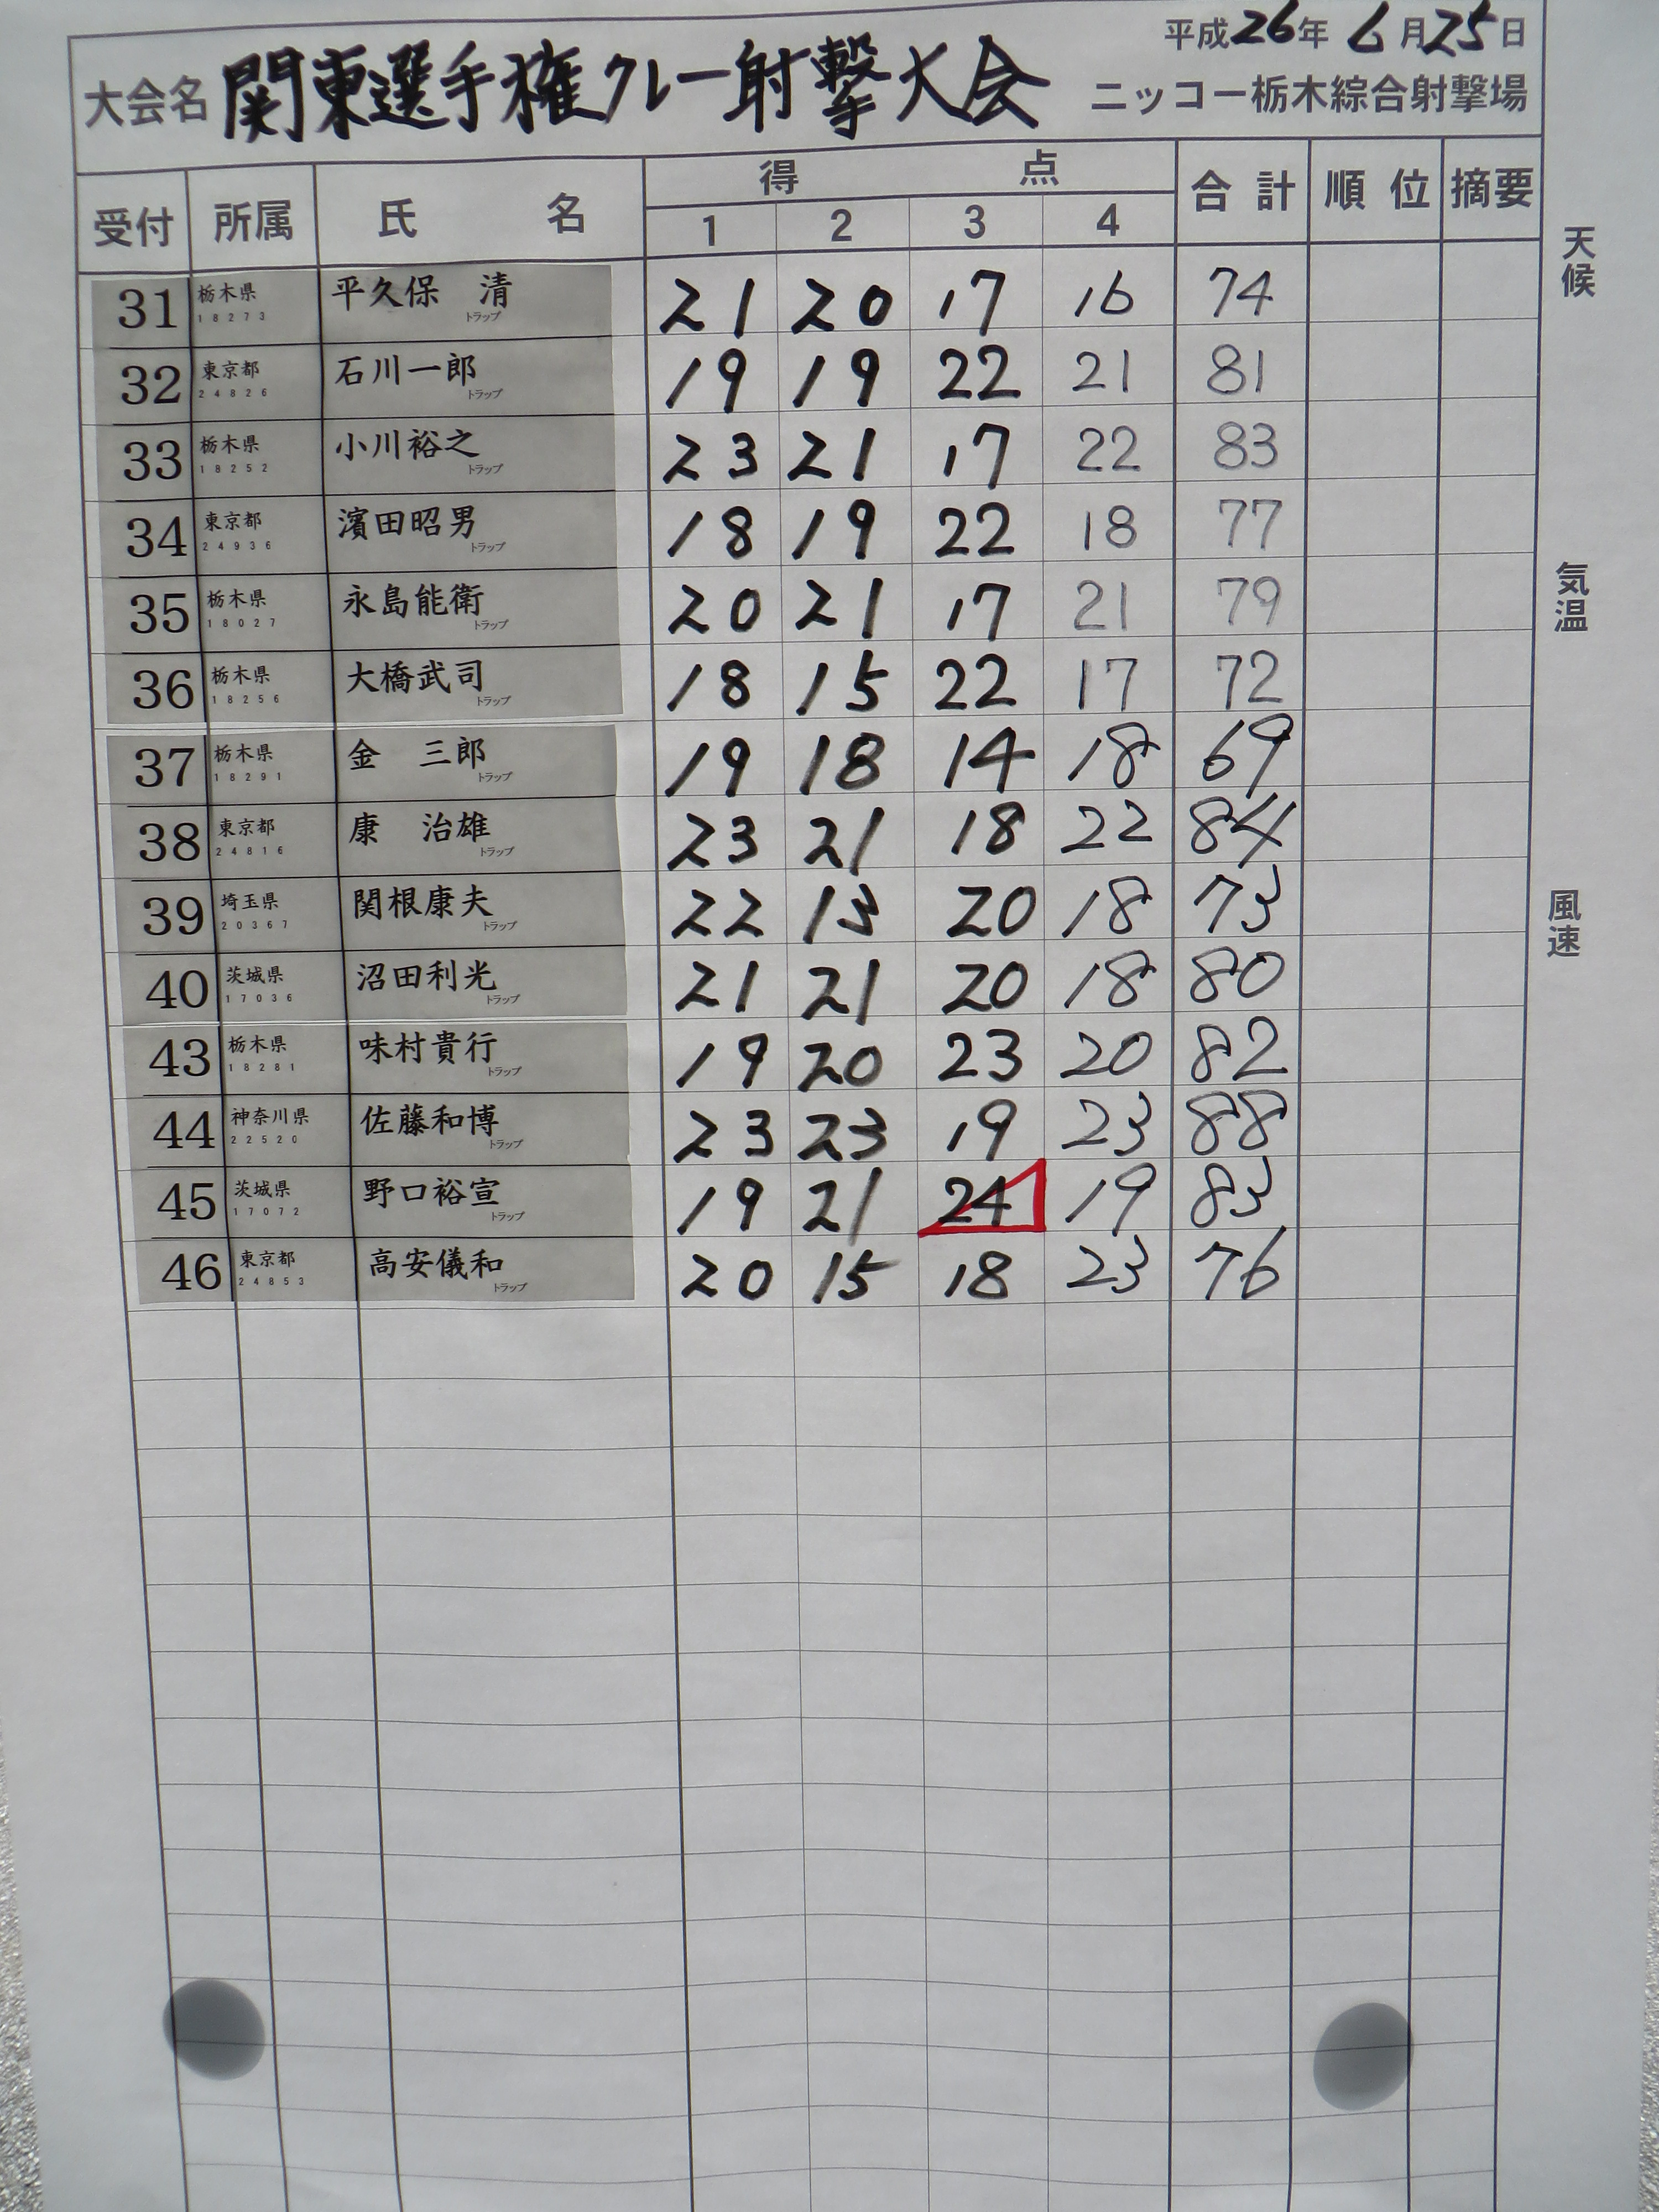 平成26年 6月25日
大会名 関東選手権クレー射撃大会 ニッコー栃木綜合射撃場
受付 所属 氏名 得点 合計 順位 摘要
1 2 3 4
31 栃木県 18273 平久保 清 トラップ 21 20 17 16 74
32 東京都 24826 石川一郎 トラップ 19 19 22 21 81
33 栃木県 18252 小川裕之 トラップ 23 21 17 22 83
34 東京都 24936 濱田昭男 トラップ 18 19 22 18 77
35 栃木県 18027 永島能衛 トラップ 20 21 17 21 79
36 栃木県 18256 大橋武司 トラップ 18 15 22 17 72
37 栃木県 18291 金 三郎 トラップ 19 18 14 18 69
38 東京都 24816 康 治雄 トラップ 23 21 18 22 84
39 埼玉県 20367 関根康夫 トラップ 22 13 20 18 73
40 茨城県 17036 沼田利光 トラップ 21 21 20 18 80
43 栃木県 18281 味村貴行 トラップ 19 20 23 20 82
44 神奈川県 22520 佐藤和博 トラップ 23 23 19 23 88
45 茨城県 17072 野口裕宣 トラップ 19 21 24 19 83
46 東京都 24853 高安儀和 トラップ 20 15 18 23 76
天候
気温
風速